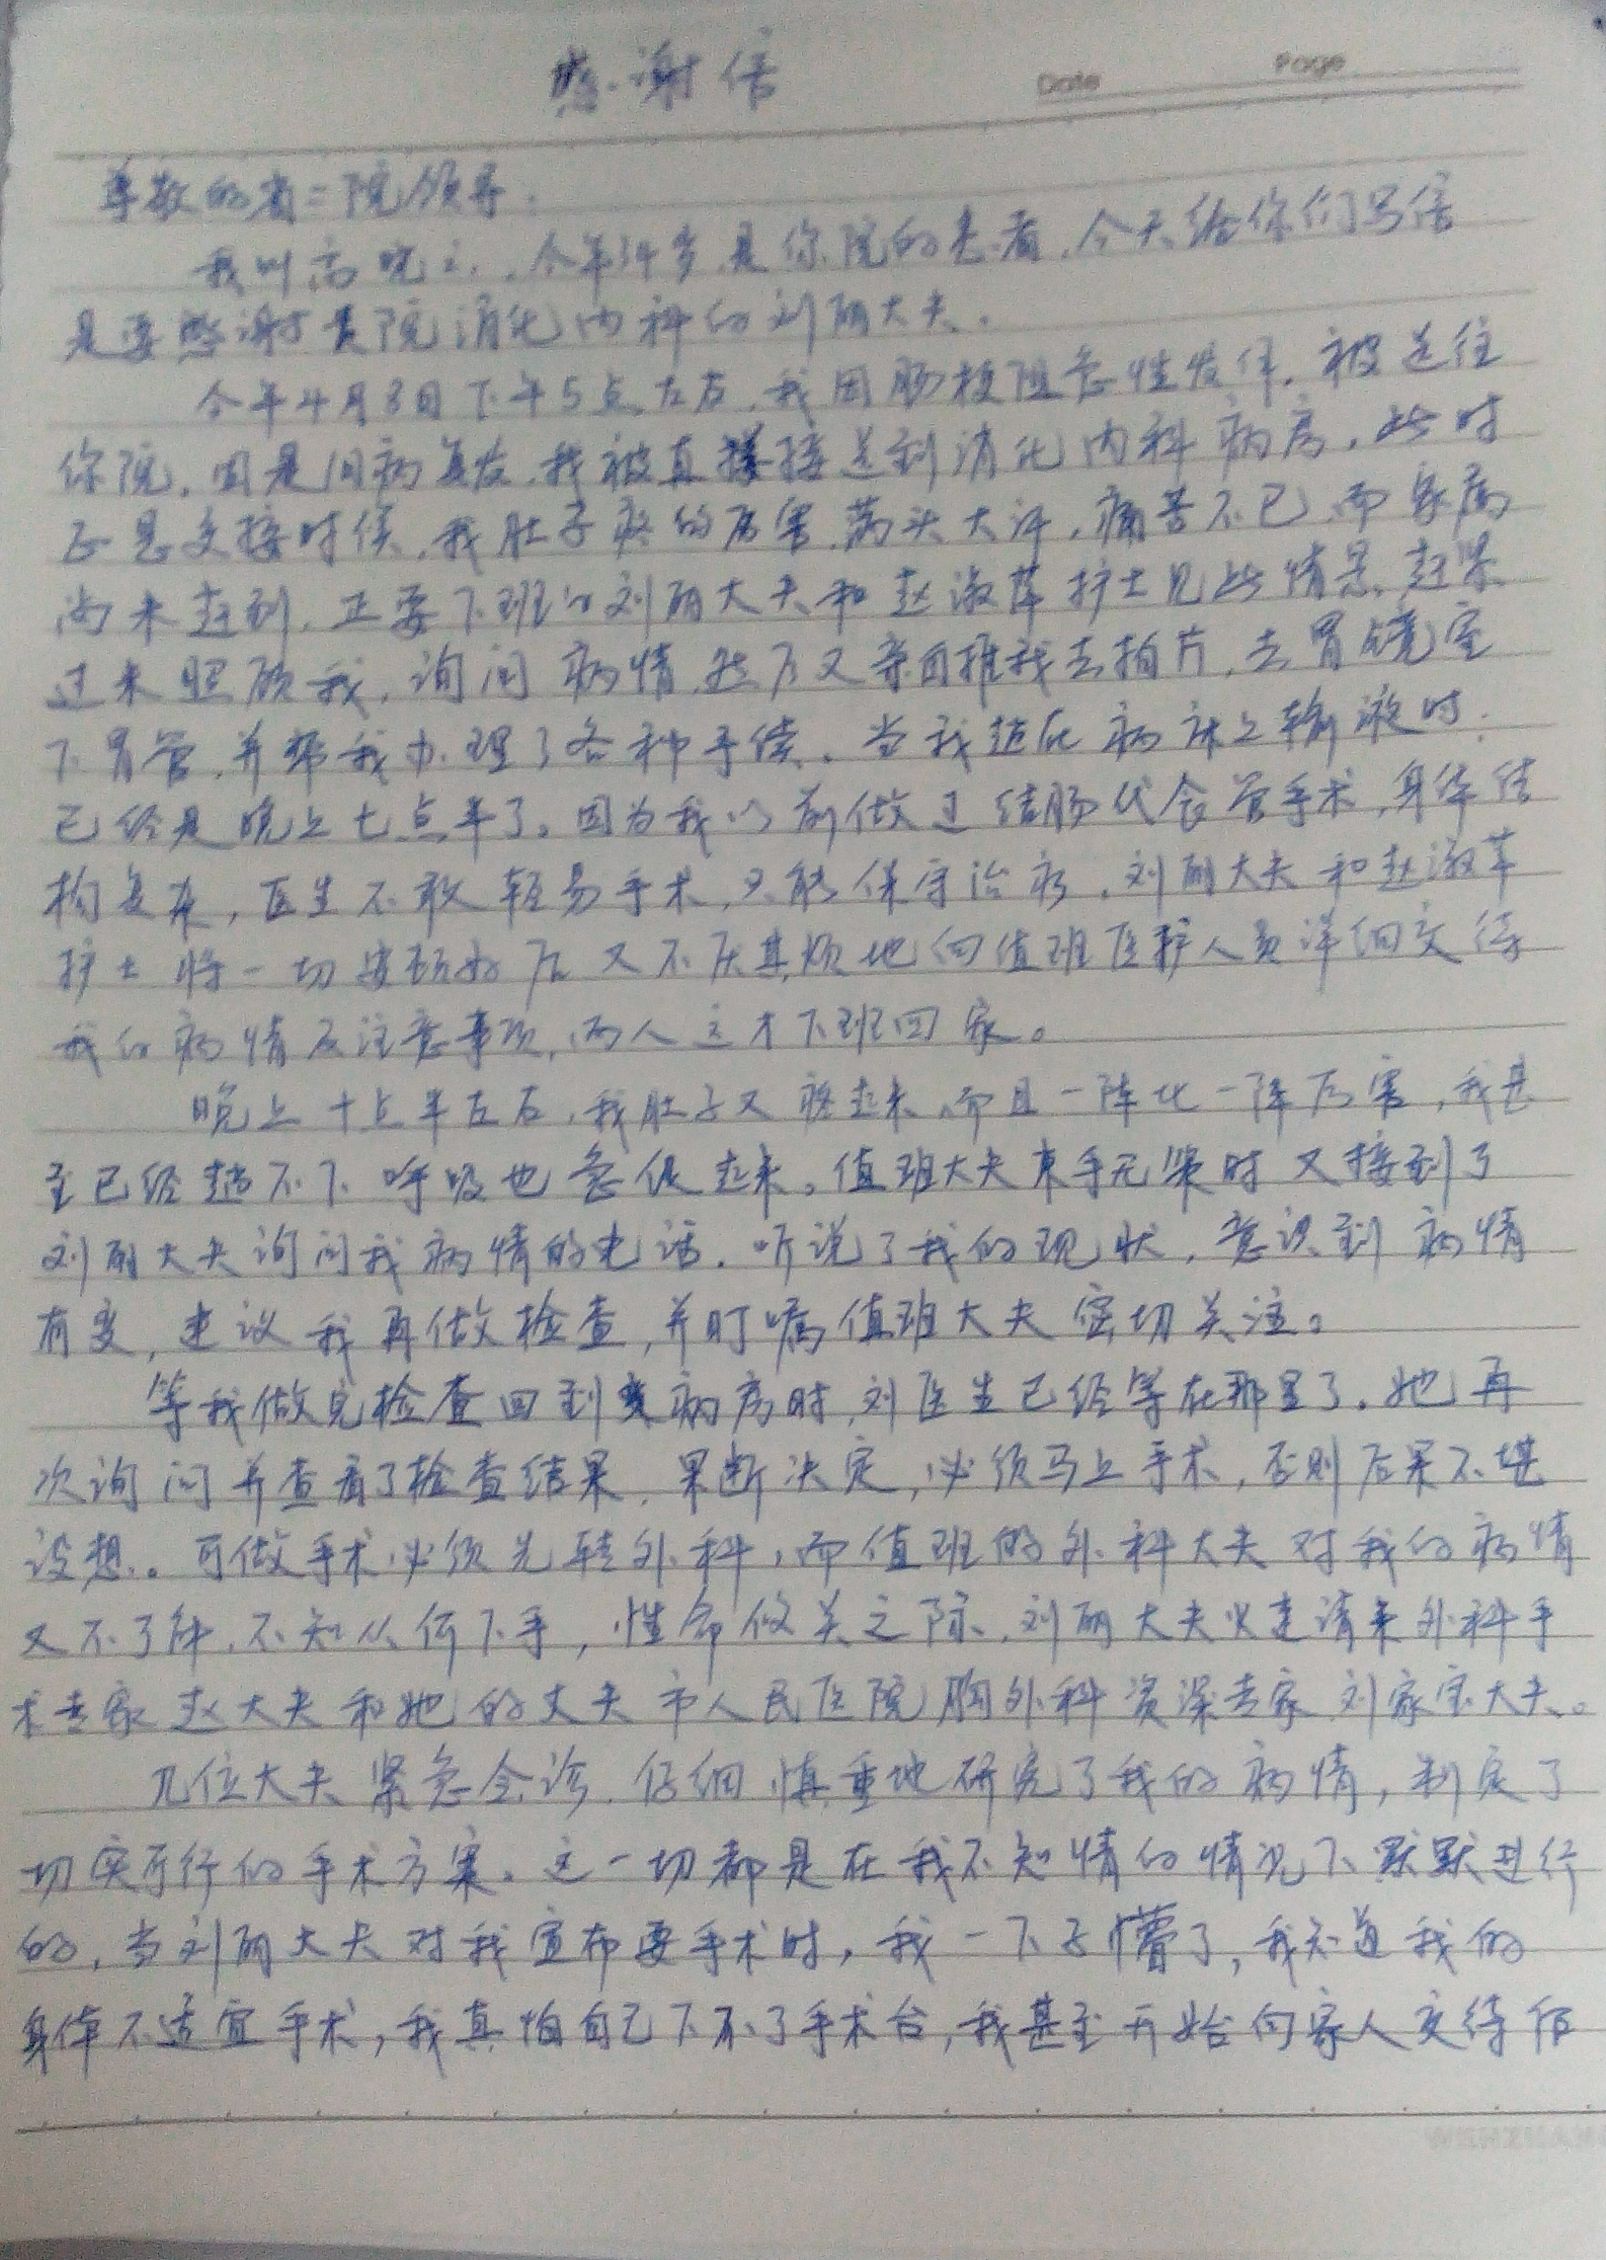 感谢信
Date Page
尊敬的省二院领导.
我叫高晓 ,今年14岁,是你院的患者,今天给你们写信
是要感谢贵院消化内科的刘丽大夫。
今年4月3日下午5点左右,我因肠梗阻急性发作,被送往
你院,因是旧病复发,我被直接送到消化内科病房,此时
正是交接时候,我肚子疼的厉害,满头大汗,痛苦不已,而家属
尚未赶到,正要下班的刘丽大夫和赵淑苹护士见此情景,赶紧
过来照顾我,询问病情,然后又亲自推我去拍片,去胃镜室
下胃管,并帮我办理了各种手续。当我趟在病床上输液时,
已经是晚上七点半了。因为我以前做过结肠代食管手术,身体结
构复杂,医生不敢轻易手术,只能保守治疗,刘丽大夫和赵淑苹
护士将一切安顿好后又不厌其烦地向值班医护人员详细交待
我的病情及注意事项,两人这才下班回家。
晚上十点半左右,我肚子又疼起来,而且一阵比一阵厉害,我甚
至已经趟不下,呼吸也急促起来。值班大夫束手无策时又接到了
刘丽大夫询问我病情的电话,听说了我的现状,意识到病情
有变,建议我再做检查,并叮嘱值班大夫密切关注。
等我做完检查回到病房时,刘医生已经等在那里了。她再
次询问并查看了检查结果,果断决定,必须马上手术,否则后果不堪
设想。可做手术必须先转外科,而值班的外科大夫对我的病情
又不了解,不知从何下手,性命攸关之际,刘丽大夫火速请来外科手
术专家赵大夫和她的丈夫市人民医院胸外科资深专家刘家宝大夫。
几位大夫紧急会诊,仔细慎重地研究了我的病情,制定了
切实可行的手术方案。这一切都是在我不知情的情况下默默进行
的,当刘丽大夫对我宣布要手术时,我一下子懵了,我知道我的
身体不适宜手术,我真怕自己下不了手术台,我甚至开始向家人交待后